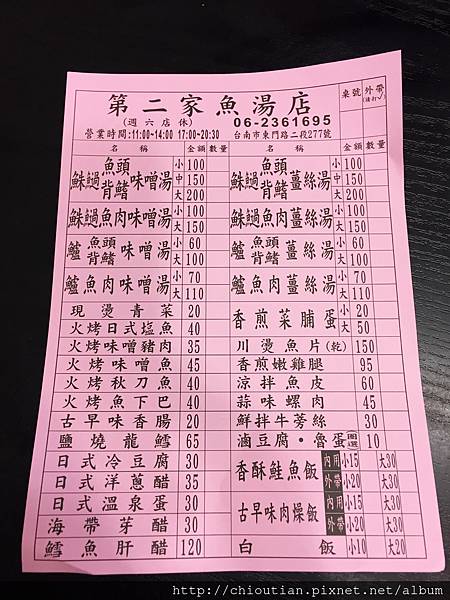 第二家魚湯店
桌號 外帶
(請打✓)
(週六店休) 06-2361695
營業時間:11:00~14:00 17:00~20:30 台南市東門路二段277號
名稱 金額 數量 名稱 金額 數量
魚頭 小 100 魚頭 小 100
鮢鯝 味噌湯 中 150 鮢鯝 薑絲湯 中 150
背鰭 大 200 背鰭 大 200
鮢鯝魚肉味噌湯 小 100 鮢鯝魚肉薑絲湯 小 100
大 150 大 150
鱸 魚頭 背鰭 味噌湯 小 60 鱸 魚頭 背鰭 薑絲湯 小 60
大 100 大 100
鱸魚肉味噌湯 小 70 鱸魚肉薑絲湯 小 70
大 110 大 110
現燙青菜 20 香煎菜脯蛋 小 20
火烤日式塩魚 40 大 50
火烤味噌豬肉 35 川燙魚片(乾) 150
火烤味噌魚 45 香煎嫩雞腿 95
火烤秋刀魚 40 涼拌魚皮 60
火烤魚下巴 40 蒜味螺肉 45
古早味香腸 20 鮮拌牛蒡絲 30
鹽燒龍鱈 65 滷豆腐・魯蛋 10
日式冷豆腐 30 香酥鮭魚飯 內用 小15 大30
日式洋蔥醋 35 外帶 小20 大30
日式溫泉蛋 30 古早味肉燥飯 內用 小15 大30
海帶芽醋 30 外帶 小20 大30
鱈魚肝醋 120 白飯 小10 大20
http://chioutian.pixnet.net/album